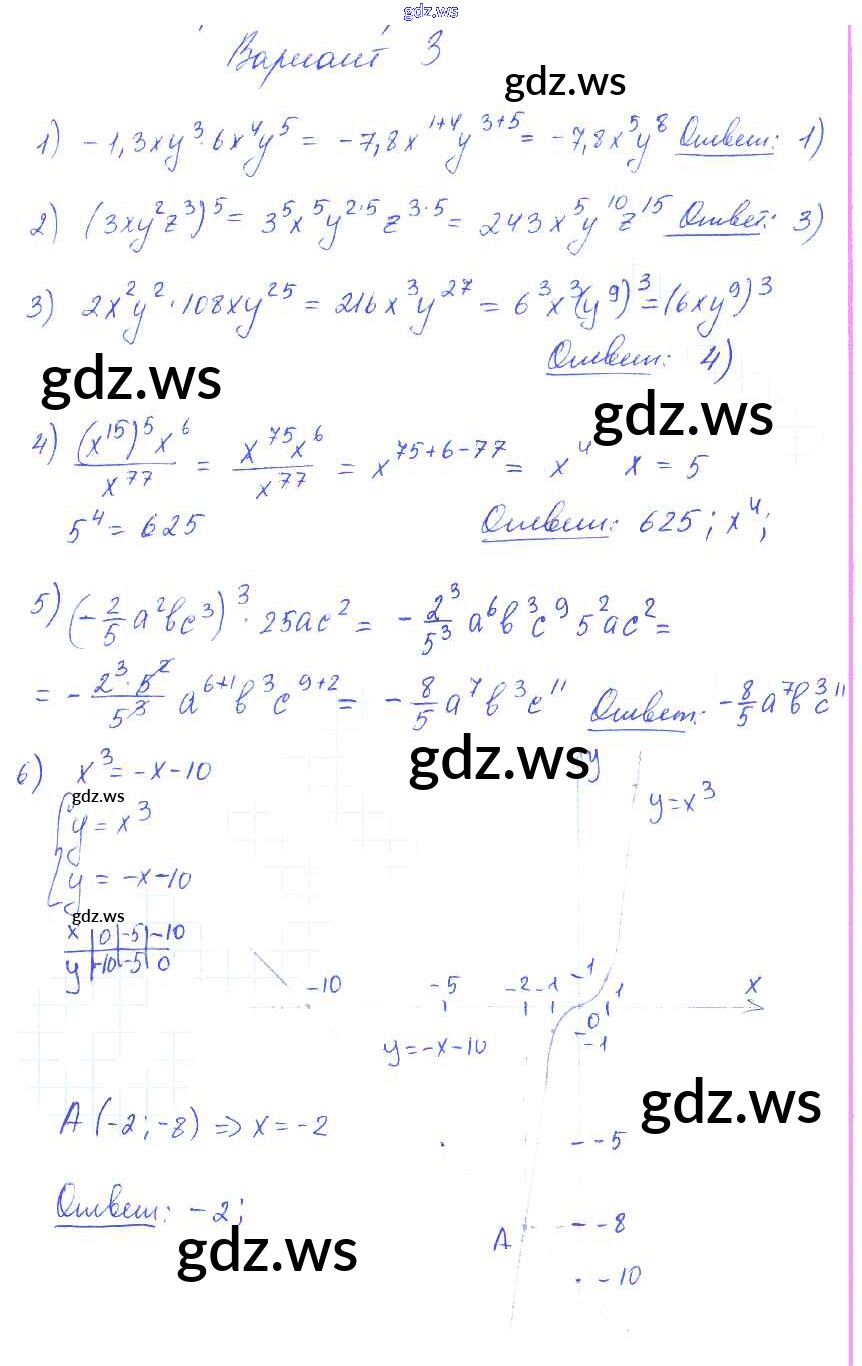 gdz.ws
Вариант 3
gdz.ws
1) -1,3xy³·6x⁴y⁵ = -7,8x¹⁺⁴y³⁺⁵ = -7,8x⁵y⁸ Ответ: 1)
2) (3xy²z³)⁵ = 3⁵x⁵y²·⁵z³·⁵ = 243x⁵y¹⁰z¹⁵ Ответ: 3)
3) 2x²y²·108xy²⁵ = 216x³y²⁷ = 6³x³(y⁹)³ = (6xy⁹)³
Ответ: 4)
gdz.ws
gdz.ws
4) (x¹⁵)⁵x⁶/x⁷⁷ = x⁷⁵x⁶/x⁷⁷ = x⁷⁵⁺⁶⁻⁷⁷ = x⁴ x = 5
5⁴ = 625 Ответ: 625; x⁴;
5) (-2/5 a²bc³)³·25ac² = -2³/5³ a⁶b³c⁹5²ac² =
= -2³·5²/5³ a⁶⁺¹b³c⁹⁺² = -8/5 a⁷b³c¹¹ Ответ: -8/5 a⁷b³c¹¹
gdz.ws
6) x³ = -x-10
y
gdz.ws
y = x³
y = x³
y = -x-10
gdz.ws
x | 0 | -5 | -10
y | -10 | -5 | 0
-10 -5 -2 -1 1 1 x
0
-1
y = -x-10
gdz.ws
A (-2; -8) => x = -2
-5
Ответ: -2;
-8
A
gdz.ws
-10